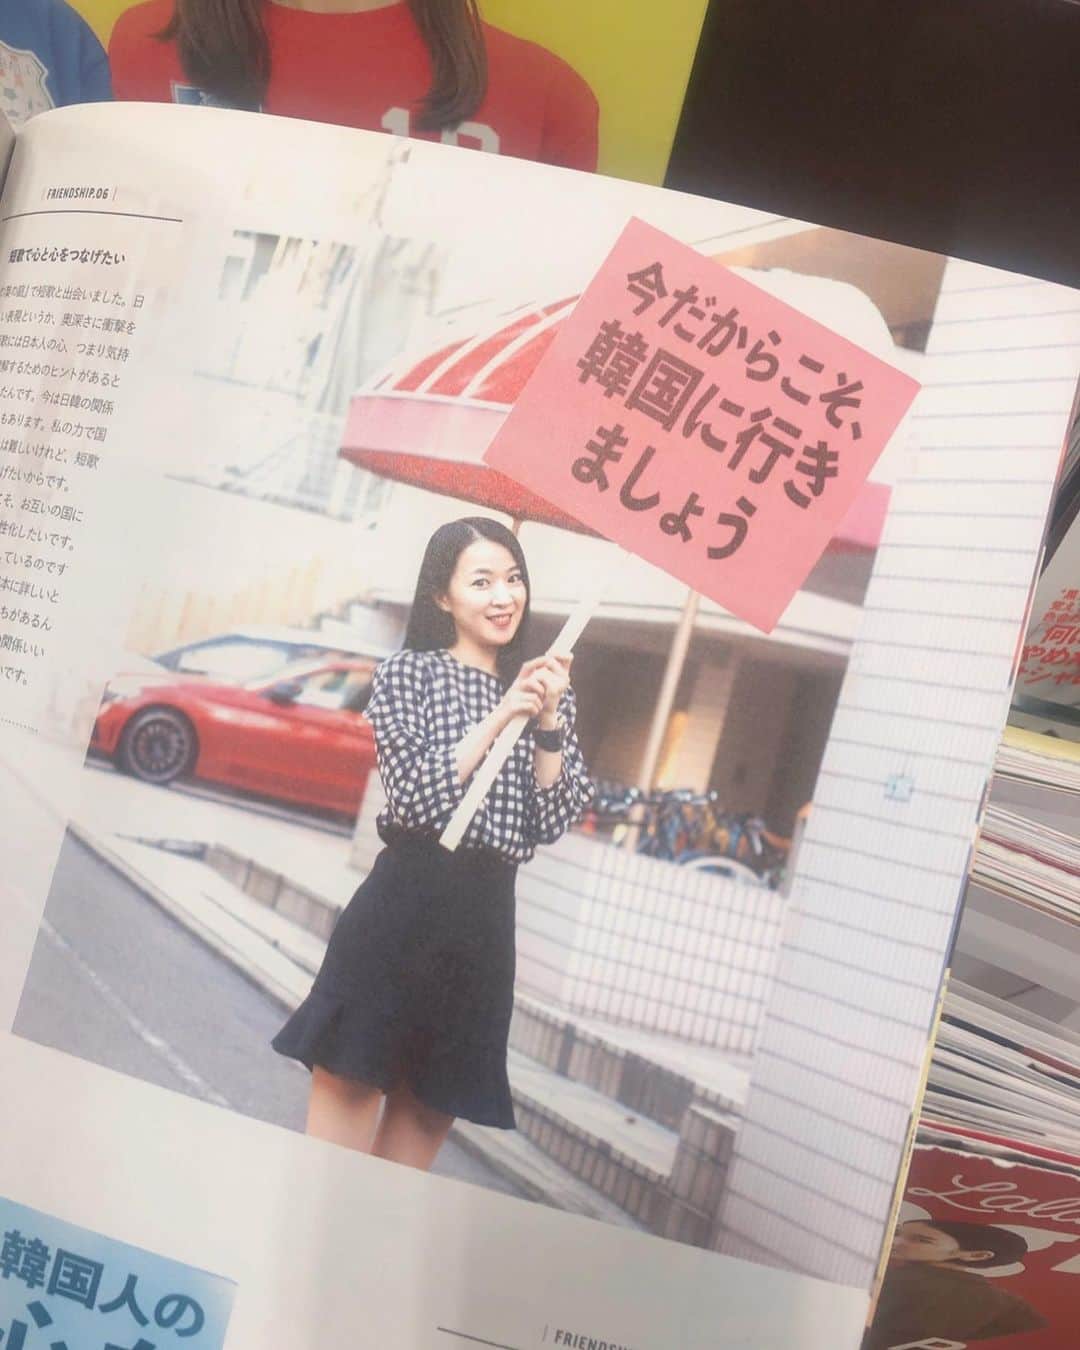 10
FRIENDSHIP.06
短歌で心と心をつなげたい
の庭」で短歌と出会いました。日
い表現というか、奥深さに衝撃を
歌には日本人の心、つまり気持
解するためのヒントがあると
たんです。今は日韓の関係
もあります。私の力で国
は難しいけれど、短歌
げたいからです。
こそ、お互いの国に
性化したいです。
しているのです
本に詳しいと
ちがあるん
関係いい
いです。
今だからこそ、
韓国に行き
ましょう
韓国人の
FRIENDSH
何
やめ
シャ
Lall